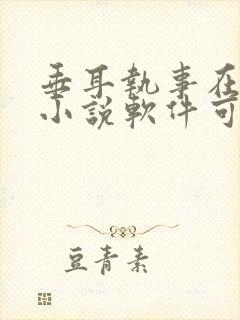 垂耳執事在
小說軟件可
豆青素